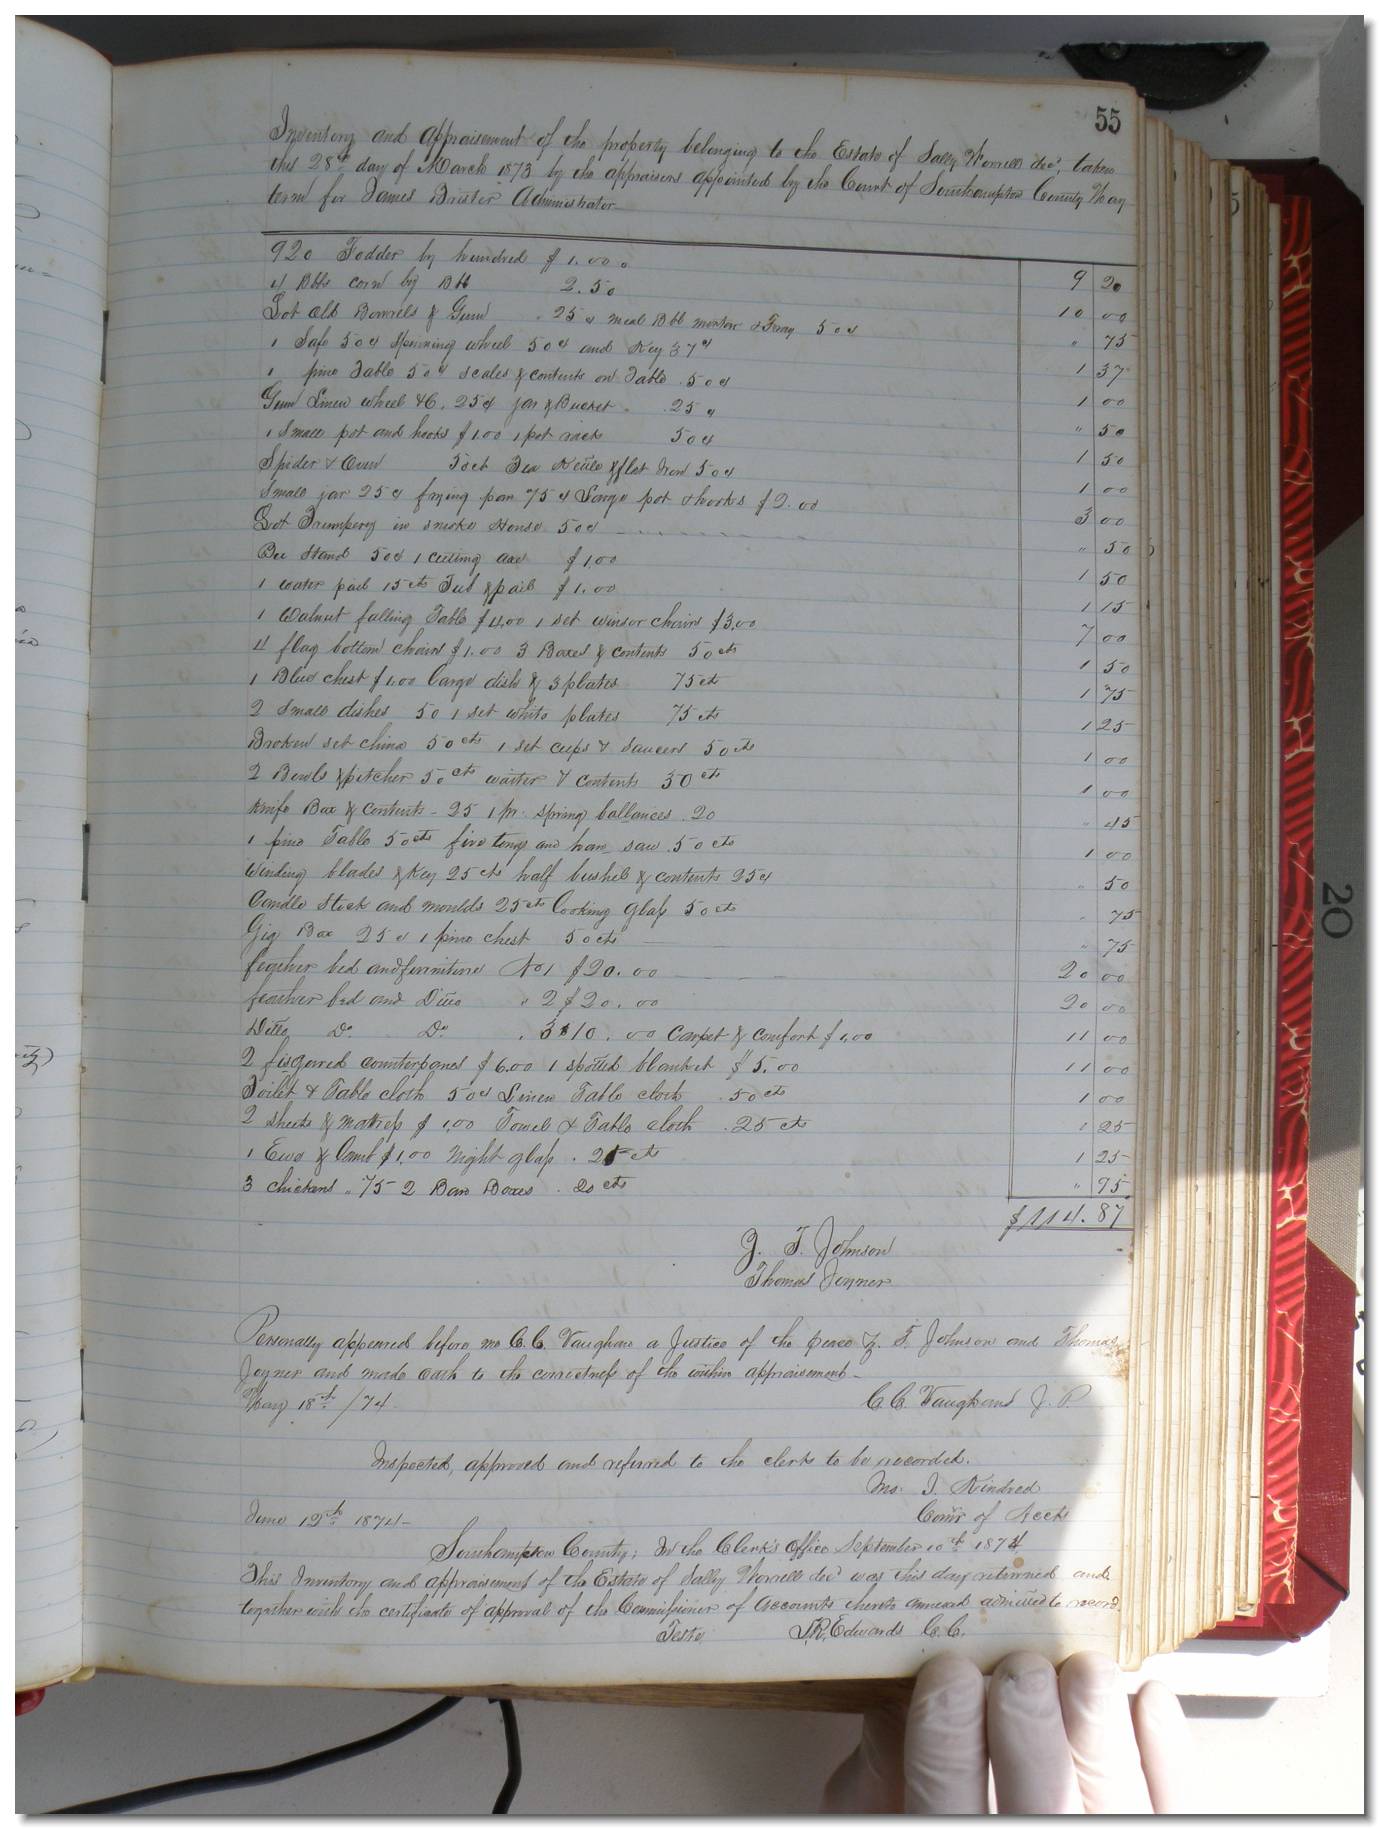 55
Inventory and appraisement of the property belonging to the Estate of Sally Worrell decd, taken
this 28th day of March 1873 by the appraisers appointed by the Court of Southampton County May
term for James Brister Administrator
920 Fodder by hundred $1.00 9 20
4 Bbls corn by Bbl 2.50 10 00
Lot old Barrels & Gum 25¢ meal Bbl mortar & Tray 50¢ " 75
1 Safe 50¢ Spinning wheel 50¢ and Key 37¢ 1 37
1 pine Table 50¢ scales & contents on Table .50¢ 1 00
Gum Linen wheel &C. 25¢ jar & Bucket .25¢ " 50
1 Small pot and hooks $1.00 1 pot rack 50¢ 1 50
Spider & Oven 50ct Tea Kettle & flat Iron 50¢ 1 00
Small jar 25¢ frying pan 75¢ Large pot & hooks $2.00 3 00
Lot Trumpery in smoke House 50¢ " 50
Bee stand 50¢ 1 cutting axe $1,00 1 50
1 water pail 15cts Tub & pail $1.00 1 15
1 Walnut falling Table $4.00 1 set winsor chairs $3,00 7 00
4 flag bottom chairs $1.00 3 Boxes & contents 50cts 1 50
1 Blue chest $1,00 large dish & 3 plates 75cts 1 75
2 small dishes 50 1 set white plates 75cts 1 25
Broken set china 50cts 1 set cups & saucers 50cts 1 00
2 Bowls & pitcher 50cts waiter & contents 50cts 1 00
Knife Box & contents - 25 1 pr. spring ballances .20 " 45
1 pine Table 50cts fire tongs and han saw .50cts 1 00
Winding blades & Key 25cts half bushel & contents 25¢ " 50
Candle stick and moulds 25cts Looking glass 50cts " 75
Gig Box 25¢ 1 pine chest 50cts " 75
feather bed and furniture No 1 $20.00 20 00
feather bed and Ditto " 2 $20.00 20 00
Ditto Do. Do. " 3 $10.00 Carpet & comfort $1,00 11 00
2 fisgured counterpanes $6.00 1 spotted blanket $5.00 11 00
Toilet & Table cloth 50¢ Linen Table cloth .50cts 1 00
2 sheets & matress $1,00 Towel & Table cloth .25cts 1 25
1 Ewe & Lamb $1,00 Night glass . 25cts 1 25
3 chickens " 75 2 Ban Boxes . 20cts " 95
$114.87
Z. T. Johnson
Thomas Joyner
Personally appeared before me C.C. Vaughan a Justice of the peace Z. T. Johnson and Thomas
Joyner and made oath to the correctness of the within appraisement -
May 18th /74. C.C. Vaughan J. P
Inspected, approved and referred to the clerk to be recorded.
Jno. J. Kindred
June 12th 1874- Comr of Accts
Southampton County; In the Clerk's Office September 10th 1874
This Inventory and appraisement of the Estate of Sally Worrell decd was this day returned and
together with the certificate of approval of the Commissioner of Accounts thereto annexed admitted to record.
Teste J.R. Edwards C. C.
20